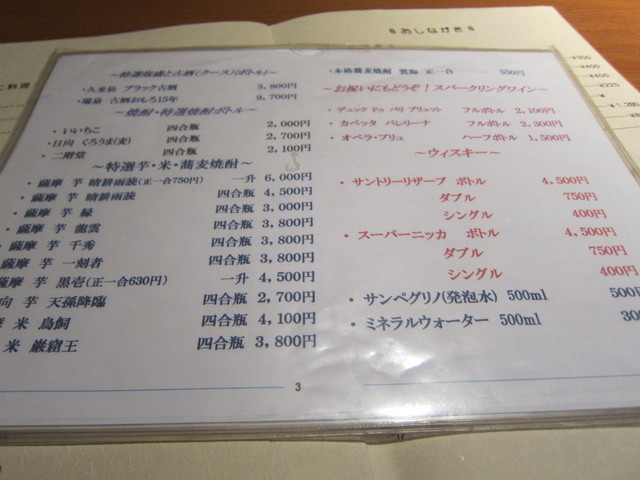 § おしながき §
～特選泡盛と古酒(クース)(ボトル)～
・久米仙 ブラック古酒 3,800円
・瑞泉 古酒おもろ15年 9,700円
～焼酎・特選焼酎ボトル～
・いいちこ 四合瓶 2,000円
・日向 くろうま(麦) 四合瓶 2,700円
・二階堂 四合瓶 2,100円
～特選芋・米・蕎麦焼酎～
・薩摩 芋 晴耕雨読(正一合750円) 一升 6,000円
・薩摩 芋 晴耕雨読 四合瓶 4,500円
・薩摩 芋 縁 四合瓶 3,000円
・薩摩 芋 龍雲 四合瓶 3,800円
・薩摩 芋 千秀 四合瓶 3,800円
薩摩 芋 一刻者 四合瓶 3,800円
薩摩 芋 黒壱(正一合630円) 一升 4,500円
向 芋 天孫降臨 四合瓶 2,700円
米 鳥飼 四合瓶 4,100円
米 巌窟王 四合瓶 3,800円
・本格蕎麦焼酎 雲海 正一合 550円
～お祝いにもどうぞ！スパークリングワイン～
・デュック ドゥ パリ ブリュット フルボトル 2,100円
・カペッタ バレリーナ フルボトル 2,300円
・オペラ・ブリュ ハーフボトル 1,500円
～ウィスキー～
・サントリーリザーブ ボトル 4,500円
ダブル 750円
シングル 400円
・スーパーニッカ ボトル 4,500円
ダブル 750円
シングル 400円
・サンペグリノ(発泡水) 500ml 500円
・ミネラルウォーター 500ml 300
3